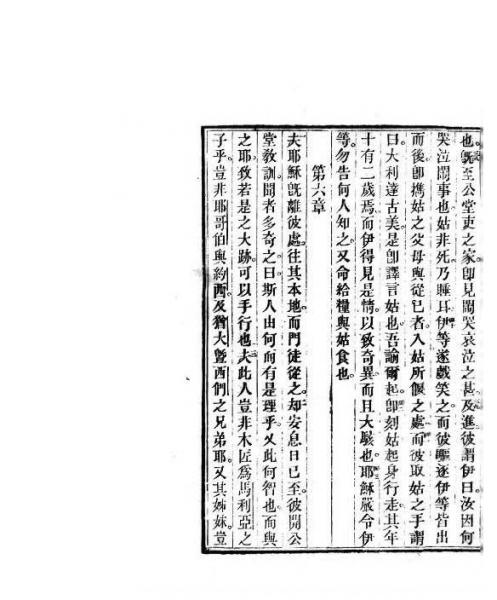 也既至公堂吏之家卽見鬧哭哀泣之甚及進彼謂伊曰汝因何
哭泣鬧事也姑非死乃睡耳伊等遂戲笑之而彼驅逐伊等皆出
而後卽攜姑之父母與從已者入姑所偃之處而彼取姑之手謂
曰大利達古美是卽譯言姑也吾諭爾起卽刻姑起身行走其年
十有二歲焉而伊得見是情以致奇異而且大駭也耶穌嚴令伊
等勿吿何人知之又命給糧與姑食也
第六章
夫耶穌旣離彼處往其本地而門徒從之却安息日已至彼開公
堂敎訓聞者多奇之曰斯人由何而有是理乎又此何智也而與
之耶致若是之大跡可以手行也夫此人豈非木匠爲馬利亞之
子乎豈非耶哥伯與約西及猶大曁西們之兄弟耶又其姊妹豈